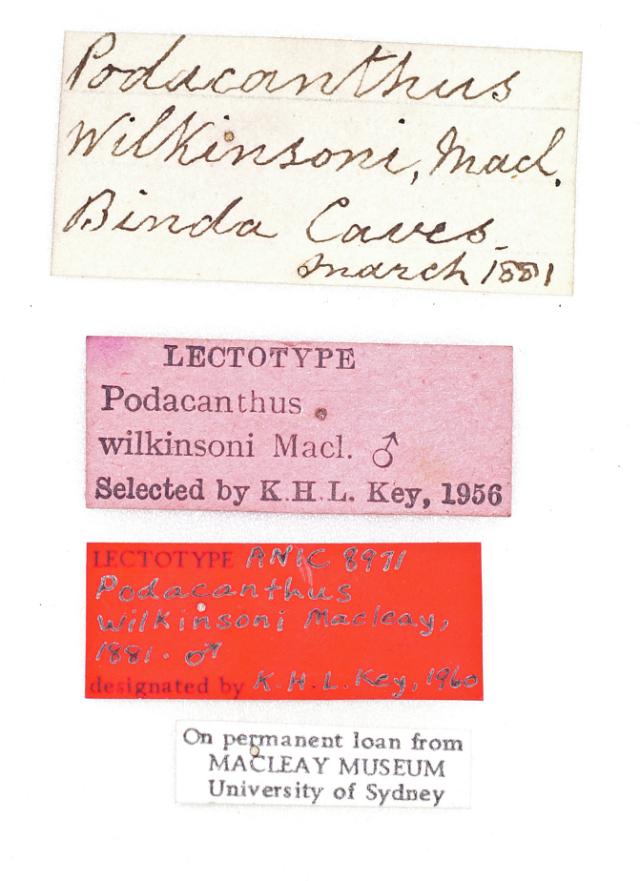 Podacanthus
Wilkinsoni, Macl.
Binda Caves.
March 1881
LECTOTYPE
Podacanthus
wilkinsoni Macl. ♂
Selected by K.H.L. Key, 1956
LECTOTYPE ANIC 8971
Podacanthus
wilkinsoni Macleay,
1881. ♂
designated by K.H.L. Key, 1960
On permanent loan from
MACLEAY MUSEUM
University of Sydney